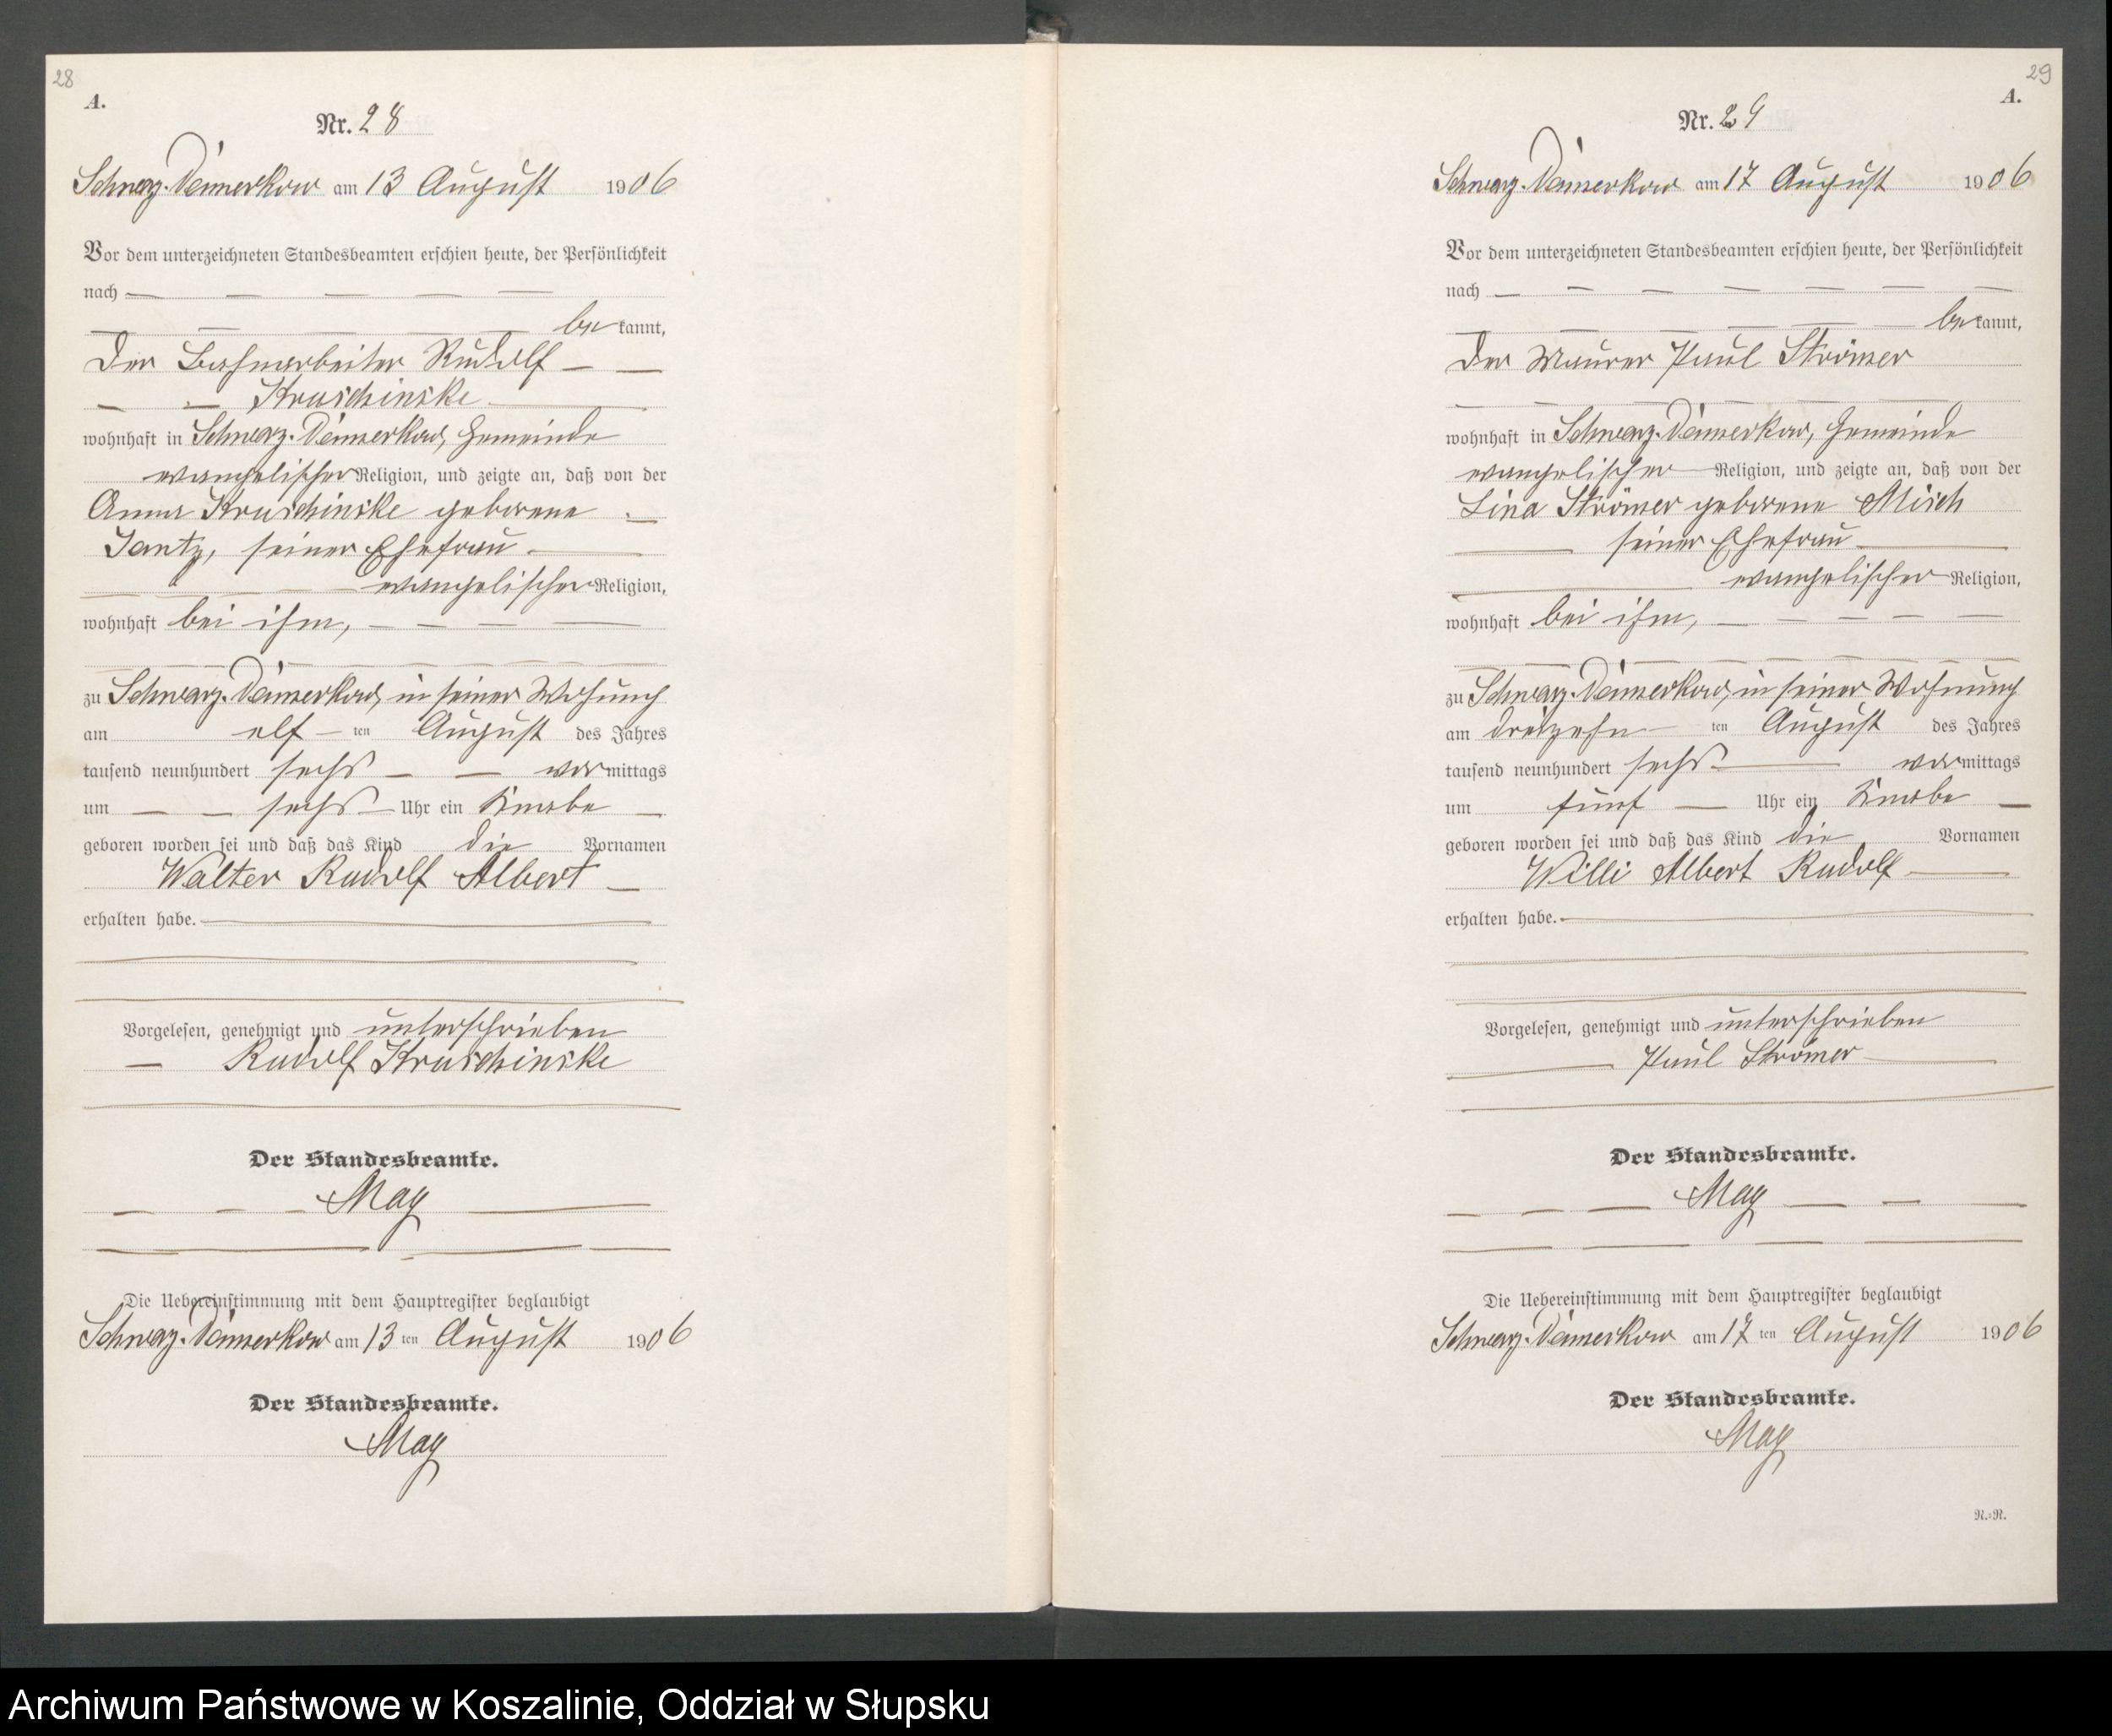 28
A.
Nr. 28
Schwarz-Damerkow am 13 August 1906
Vor dem unterzeichneten Standesbeamten erschien heute, der Persönlichkeit
nach
be kannt,
der Bahnarbeiter Rudolf
Kruschinske
wohnhaft in Schwarz-Damerkow, Gemeinde
evangelischer Religion, und zeigte an, daß von der
Anna Kruschinske geborene
Jantz, seiner Ehefrau
evangelischer Religion,
wohnhaft bei ihm,
zu Schwarz-Damerkow, in seiner Wohnung
am elf ten August des Jahres
tausend neunhundert sechs vor mittags
um sechs Uhr ein Knabe
geboren worden sei und daß das Kind die Vornamen
Walter Rudolf Albert
erhalten habe.
Vorgelesen, genehmigt und unterschrieben
Rudolf Kruschinske
Der Standesbeamte.
May
Die Uebereinstimmung mit dem Hauptregister beglaubigt
Schwarz-Damerkow am 13 ten August 1906
Der Standesbeamte.
May
29
A.
Nr. 29
Schwarz-Damerkow am 17 August 1906
Vor dem unterzeichneten Standesbeamten erschien heute, der Persönlichkeit
nach
be kannt,
der Maurer Paul Strömer
wohnhaft in Schwarz-Damerkow, Gemeinde
evangelischer Religion, und zeigte an, daß von der
Lina Strömer geborene Misch
seiner Ehefrau
evangelischer Religion,
wohnhaft bei ihm,
zu Schwarz-Damerkow, in seiner Wohnung
am dreizehn ten August des Jahres
tausend neunhundert sechs vor mittags
um fünf Uhr ein Knabe
geboren worden sei und daß das Kind die Vornamen
Willi Albert Rudolf
erhalten habe.
Vorgelesen, genehmigt und unterschrieben
Paul Strömer
Der Standesbeamte.
May
Die Uebereinstimmung mit dem Hauptregister beglaubigt
Schwarz-Damerkow am 17 ten August 1906
Der Standesbeamte.
May
N.=N.
Archiwum Państwowe w Koszalinie, Oddział w Słupsku